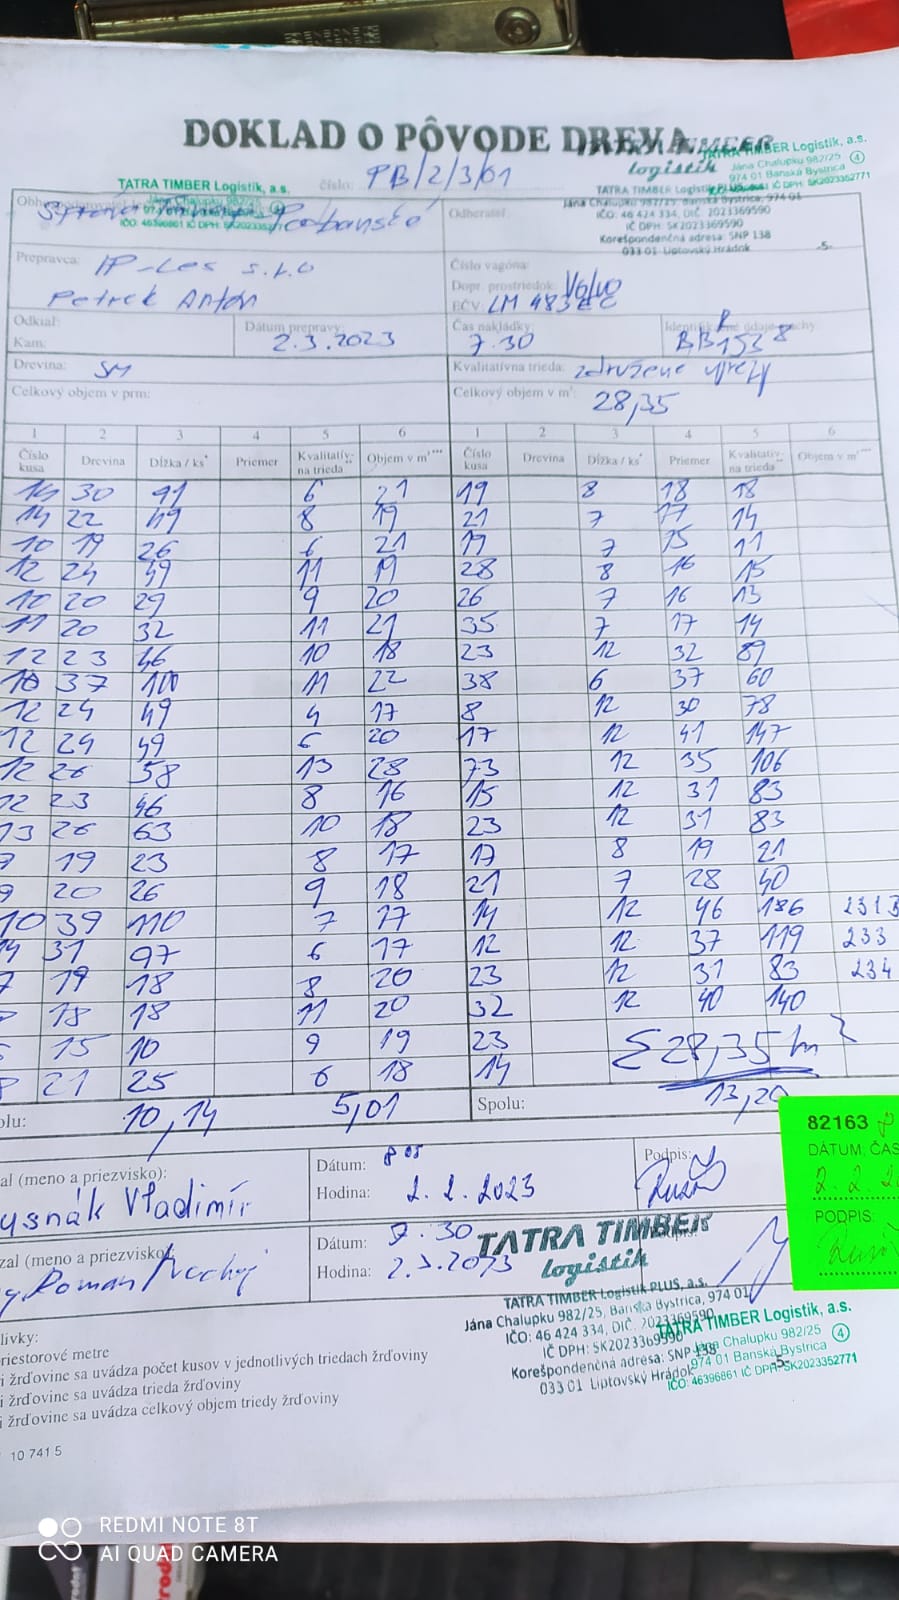 DOKLAD O PÔVODE DREVA
TATRA TIMBER
logistik
TATRA TIMBER Logistik, a.s.
Jána Chalupku 982/25 4
974 01 Banská Bystrica
IČ DPH: SK2023352771
číslo: PB/2/3/01
TATRA TIMBER Logistik, a.s.
Jána Chalupku 982/25
IČO: 46396861 IČ DPH:
TATRA TIMBER Logistik PLUS, a.s.
Jána Chalupku 982/25, Banská Bystrica, 974 01
IČO: 46 424 334, DIČ: 2023369590
IČ DPH: SK2023369590
Korešpondenčná adresa: SNP 138
033 01 Liptovský Hrádok -5-
Odberateľ:
Prepravca: IP-Les s.r.o
Petrek Anton
Číslo vagóna:
Dopr. prostriedok: Volvo
EČV: LM 483 EC
Odkiaľ:
Kam:
Dátum prepravy:
2.3.2023
Čas nakládky:
7.30
BB 153 8
Drevina: SM
Kvalitatívna trieda: združené výrezy
Celkový objem v prm:
Celkový objem v m³: 28,35
1 2 3 4 5 6 1 2 3 4 5 6
Číslo kusa Drevina Dĺžka / ks* Priemer Kvalitatív- na trieda** Objem v m³*** Číslo kusa Drevina Dĺžka / ks* Priemer Kvalitatív- na trieda** Objem v m³***
14 30 91 6 21 19 8 18 18
14 22 49 8 19 21 7 17 14
10 19 26 6 21 17 7 15 11
12 24 49 11 19 28 8 16 15
10 20 29 9 20 26 7 16 13
11 20 32 11 21 35 7 17 14
12 23 46 10 18 23 12 32 89
10 37 100 11 22 38 6 37 60
12 24 49 4 17 8 12 30 78
12 24 49 6 20 17 12 41 147
12 26 58 13 28 73 12 35 106
12 23 46 8 16 15 12 31 83
13 26 63 10 18 23 12 31 83
19 23 8 17 17 8 19 21
9 20 26 9 18 21 7 28 40
10 39 110 7 17 14 12 46 186 231
14 31 97 6 17 12 12 37 119 233
7 19 18 8 20 23 12 31 83 234
18 18 11 20 32 12 40 140
15 10 9 19 23 Σ 28,35 m³
21 25 6 18 14
olu: 10,14 5,01 Spolu: 13,20
82163
DÁTUM, ČAS
2.2.2
PODPIS:
al (meno a priezvisko):
ysnák Vladimír
Dátum: 8 05
Hodina: 2.2.2023
Podpis:
zal (meno a priezvisko):
Roman
Dátum: 7.30
Hodina: 2.3.2023
TATRA TIMBER
logistik
TATRA TIMBER Logistik PLUS, a.s.
Jána Chalupku 982/25, Banská Bystrica, 974 01
IČO: 46 424 334, DIČ: 2023369590
IČ DPH: SK2023369590
Korešpondenčná adresa: SNP 138
033 01 Liptovský Hrádok -5-
TATRA TIMBER Logistik, a.s.
Jána Chalupku 982/25 4
974 01 Banská Bystrica
IČO: 46396861 IČ DPH: SK2023352771
lívky:
riestorové metre
i žrďovine sa uvádza počet kusov v jednotlivých triedach žrďoviny
i žrďovine sa uvádza trieda žrďoviny
i žrďovine sa uvádza celkový objem triedy žrďoviny
10 741 5
REDMI NOTE 8T
AI QUAD CAMERA